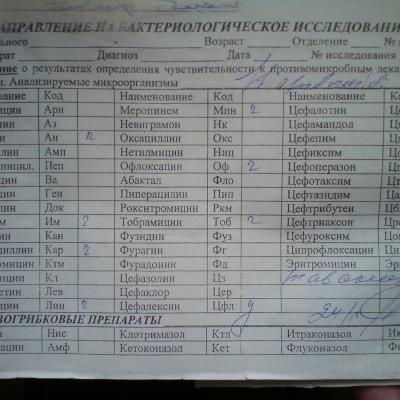 АПРАВЛЕНИЕ НА БАКТЕРИОЛОГИЧЕСКОЕ ИССЛЕДОВАНИ
льного Возраст Отделение №
рат Диагноз Дата № исследования
ние о результатах определения чувствительности к противомикробным лека
и. Анализируемые микроорганизмы
вание Код Наименование Код Наименование К
ицин Ари Меропинем Мпн Цефалотин Ц
ин Аз Невиграмон Нк Цефамандол Ц
н Ан Оксациллин Окс Цефепим Ц
ллин Амп Нетилмицин Нет Цефиксим Ц
ницил. Пеп Офлоксацин Оф Цефоперазон Ц
цин Ва Абактал Фло Цефотаксим Ц
ин Ген Пиперацилин Пип Цефтазидим Ц
ин Док Рокситромицин Ркм Цефтрибутен Ц
м Им Тобрамицин Тоб Цефтриаксон Ц
ин Кан Фузидин Фуз Цефуроксим Ц
циллин Кар Фурагин Фг Ципрофлоксацин Ц
мицин Ктм Фурадонин Фд Эритромицин Эр
ицин Кт Цефазолин Цз
етин Лев Цефаклор Цер
цин Лин Цефалексин Цфл
ВОГРИБКОВЫЕ ПРЕПАРАТЫ
н Нис Клотримазол Ктл Итраконазол И
ицин Амф Кетоконазол Кет Флуконазол Ф